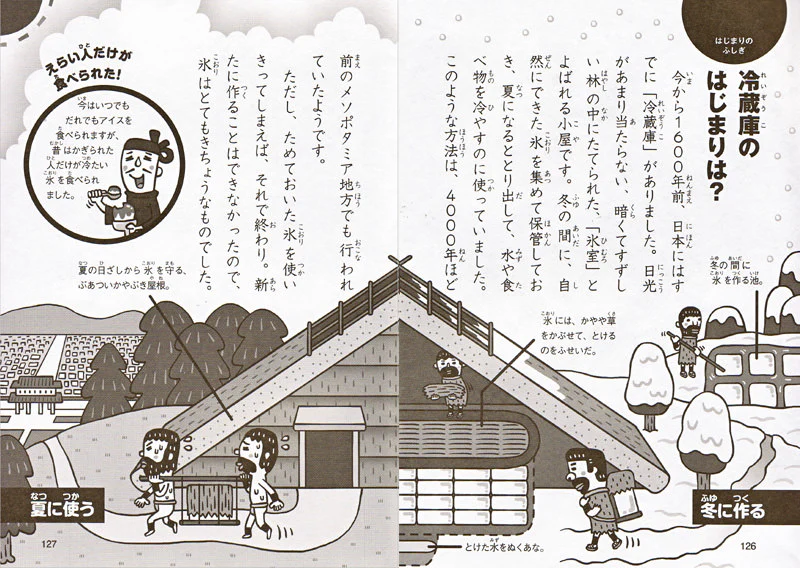 はじまりの
ふしぎ
冷蔵庫の
はじまりは？
今から1600年前、日本にはす
でに「冷蔵庫」がありました。日光
があまり当たらない、暗くてすずし
い林の中にたてられた、「氷室」と
よばれる小屋です。冬の間に、自
然にできた氷を集めて保管してお
き、夏になるととり出して、水や食
べ物を冷やすのに使っていました。
このような方法は、4000年ほど
冬の間に
氷を作る池。
氷には、かやや草
をかぶせて、とける
のをふせいだ。
とけた水をぬくあな。
冬に作る
126
前のメソポタミア地方でも行われ
ていたようです。
ただし、ためておいた氷を使い
きってしまえば、それで終わり。新
たに作ることはできなかったので、
氷はとてもきちょうなものでした。
えらい人だけが
食べられた！
今はいつでも
だれでもアイスを
食べられますが、
昔はかぎられた
人だけが冷たい
氷を食べられ
ました。
夏の日ざしから氷を守る、
ぶあついかやぶき屋根。
夏に使う
127